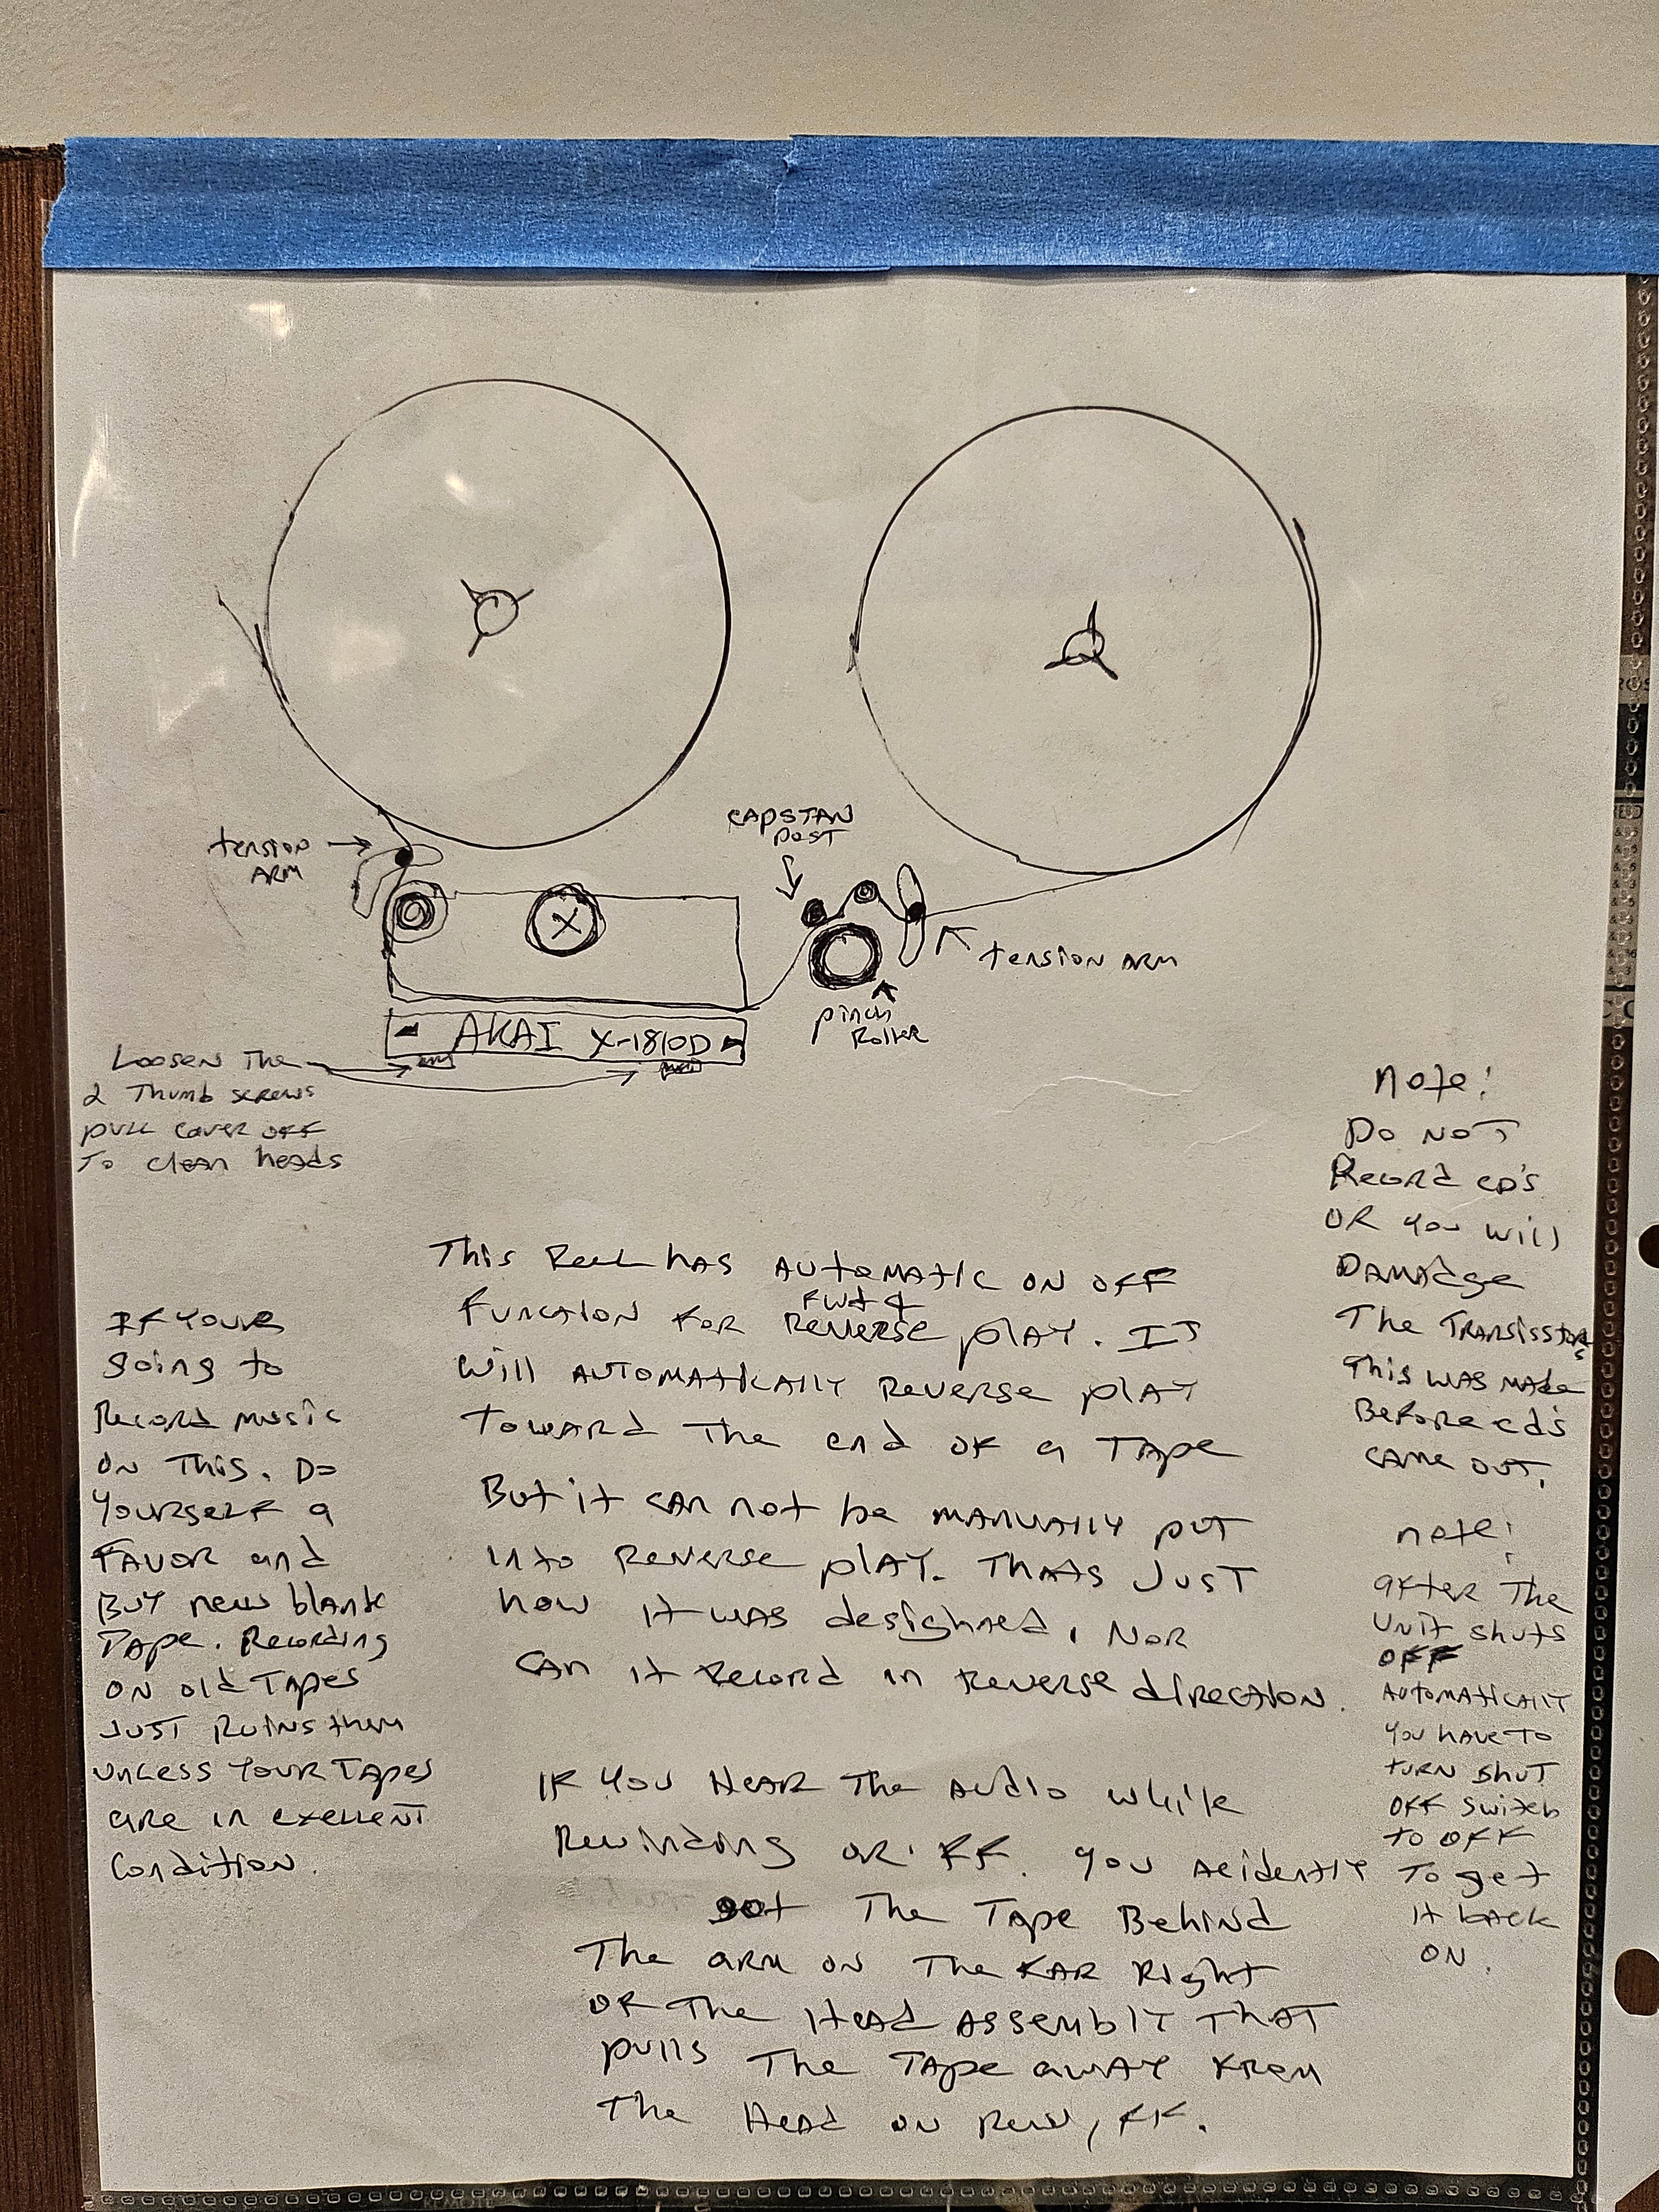 CAPSTAN
POST
tension
ARM
tension ARM
pinch
Roller
AKAI X-1810D
Loosen The
2 Thumb screws
pull cover off
To clean heads
Note!
Do NOT
Record CD's
OR you will
Damadge
The Transisstors
This was made
Before cd's
came out.
This Reel has Automatic on off
Fwd &
Function For Reverse play. It
will automatically Reverse play
Toward The end of a Tape
But it can not be manually put
into Reverse play. Thats Just
how it was designhed, Nor
can it Record in Reverse direction.
If Your
going to
Record music
on This. Do
Yourself a
Favor and
Buy new blank
Tape. Recording
on old Tapes
Just Ruins them
unless your Tapes
are in exellent
Condition.
note!
after The
Unit shuts
off
Automatically
you have to
turn shut
off switch
to off
To get
it back
on.
If You Hear The Audio while
Rewinding or FF. you acidently
got The Tape Behind
The arm on The Far Right
of The Head assembly That
pulls The Tape away From
The Head on Rew, FF.